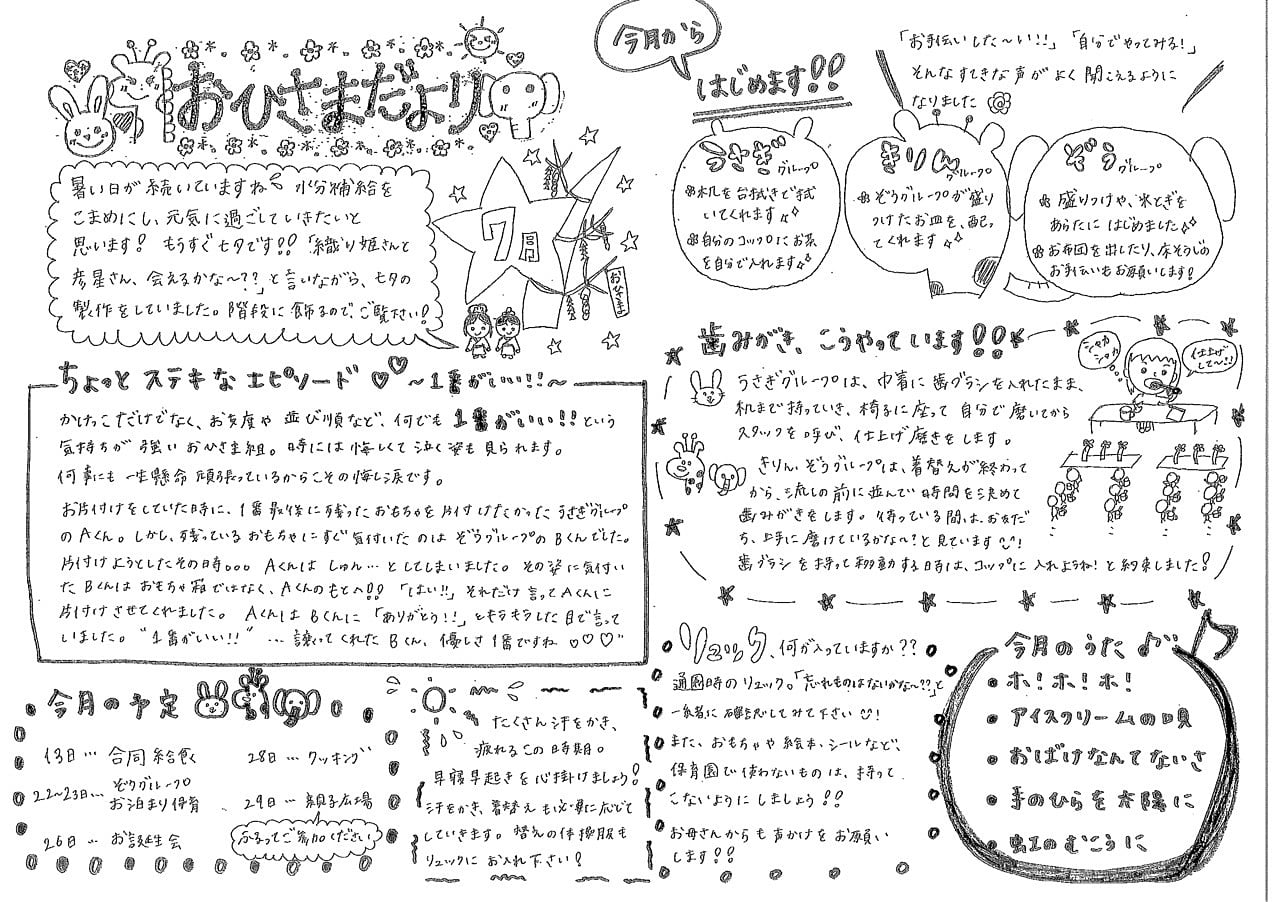 おひさまだより
7月
おひさま
暑い日が続いていますね 水分補給を
こまめにし、元気に過ごしていきたいと
思います! もうすぐ七夕です!!「織り姫さんと
彦星さん、会えるかな〜??」と言いながら、七夕の
製作をしていました。階段に飾るので、ご覧下さい!
今月から
はじめます!!
「お手伝いした〜い!!」「自分でやってみる!」
そんなすてきな声がよく聞こえるように
なりました
うさぎグループ
机を台拭きで拭
いてくれます
自分のコップにお茶
を自分で入れます
きりんグループ
ぞうグループが盛り
つけたお皿を、配っ
てくれます
ぞうグループ
盛りつけや、米とぎを
あらたに はじめました
お布団を出したり、床そうじの
お手伝いもお願いします!
ちょっと ステキな エピソード ♡♡ 〜1番がいい!!〜
かけっこだけでなく、お支度や 並び順など、何でも 1番がいい!! という
気持ちが 強い おひさま組。時には 悔しくて 泣く姿も 見られます。
何事にも 一生懸命 頑張っているからこその悔し涙です。
お片付けをしていた時に、1番最後に残ったおもちゃを片付けたかったうさぎグループ
の Aくん。しかし、残っているおもちゃにすぐ気付いたのは ぞうグループの Bくんでした。
片付けようとしたその時。。。 Aくんは しゅん…としてしまいました。その姿に気付い
た Bくんは おもちゃ箱ではなく、Aくんのもとへ!!「はい!!」それだけ 言って Aくんに
片付けさせてくれました。 Aくんは Bくんに 「ありがとう!!」とキラキラした目で言って
いました。“1番がいい!!” …譲ってくれた Bくん、優しさ 1番ですね ♡♡♡”
歯みがき、こうやっています!!
シャカ
シャカ
仕上げ
して〜!!
うさぎグループは、巾着に歯ブラシを入れたまま、
机まで持っていき、椅子に座って 自分で磨いてから
スタッフを呼び、仕上げ磨きをします。
きりん、ぞうグループは、着替えが終わって
から、流しの前に並んで 時間を決めて
歯みがきをします。待っている間は、お友だ
ち、上手に磨けているかな〜?と見ています!
歯ブラシを持って移動する時は、コップに 入れようね!と約束しました!
今月の予定
13日… 合同給食
22〜23日… ぞうグループ
お泊まり保育
26日 … お誕生会
28日 … クッキング
29日 … 親子広場
ふるってご参加ください
たくさん汗をかき、
疲れるこの時期。
早寝早起きを心掛けましょう!
汗をかき、着替えも必要に応じて
していきます。替えの体操服も
リュックに お入れ下さい!
リュック、何が入っていますか??
通園時のリュック。「忘れものはないかな〜??」と
一緒に確認してみて下さい!
また、おもちゃや絵本、シールなど、
保育園で使わないものは、持って
こないようにしましょう!!
お母さんからも声かけをお願い
します!!
今月のうた♪
• ホ!ホ!ホ!
• アイスクリームの唄
• おばけなんてないさ
• 手のひらを太陽に
• 虹のむこうに